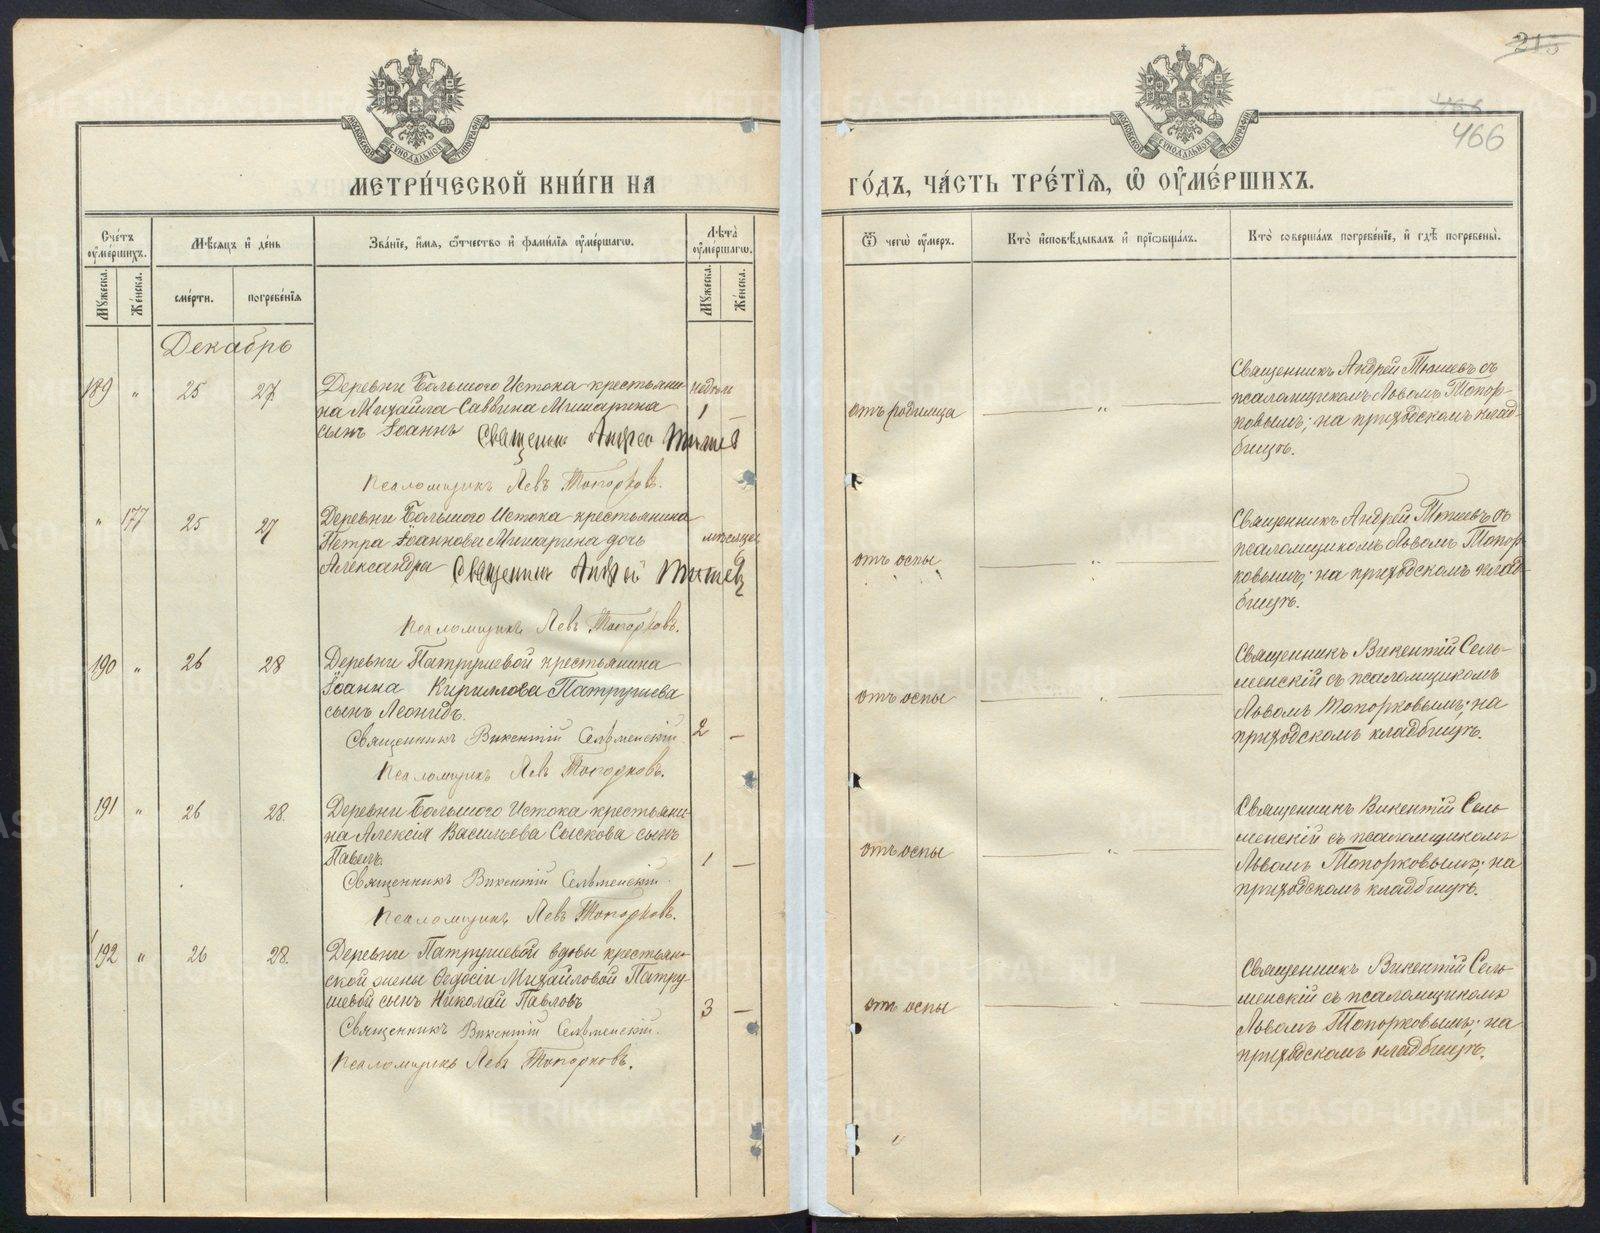 215
466
466
МОСКОВСКОЙ СѴНОДАЛЬНОЙ ТИПОГРАФІИ
МОСКОВСКОЙ СѴНОДАЛЬНОЙ ТИПОГРАФІИ
МЕТРИ́ЧЕСКОЙ КНИ́ГИ НА
ГО́ДЪ, ЧА́СТЬ ТРЕ́ТІѦ, Ѡ҆ ОУ҆МЕ́РШИХЪ.
Сче́тъ оу҆ме́ршихъ.
Мꙋжеска.
Же́нска.
Мѣ́сѧцъ и҆ де́нь
сме́рти.
погребе́нїѧ
Зва́нїе, и҆́мѧ, ѻ҆́тчество и҆ фами́лїѧ оу҆ме́ршагѡ.
Лѣ́та оу҆ме́ршагѡ.
Мꙋжеска.
Же́нска.
Ѿ чегѡ̀ оу҆́меръ.
Кто̀ и҆сповѣ́дывалъ и҆ прїѡбща́лъ.
Кто̀ соверша́лъ погребе́нїе, и҆ гдѣ̀ погребены̀.
Декабрь
189 " 25 27
Деревни Большого Истока крестьяни-
на Михаила Саввина Мишарина
сынъ Іоаннъ Священник Андрей Тюшев
Псаломщикъ Левъ Топорковъ.
недѣли
1 —
отъ родимца
— " —
Священникъ Андрей Тюшевъ съ
псаломщикомъ Львомъ Топор-
ковымъ; на приходскомъ клад-
бищѣ.
" 177 25 27
Деревни Большого Истока крестьянина
Петра Іоаннова Мишарина дочь
Александра Священник Андрей Тюшев
Псаломщикъ Левъ Топорковъ.
мѣсяцев
отъ оспы
— " —
Священникъ Андрей Тюшевъ съ
псаломщикомъ Львомъ Топор-
ковымъ; на приходскомъ клад-
бищѣ.
190 " 26 28
Деревни Патрушевой крестьянина
Іоанна Кириллова Патрушева
сынъ Леонидъ.
Священникъ Викентій Сельменскій
Псаломщикъ Левъ Топорковъ.
2 —
отъ оспы
— " —
Священникъ Викентій Сель-
менскій съ псаломщикомъ
Львомъ Топорковымъ; на
приходскомъ кладбищѣ.
191 " 26 28.
Деревни Большого Истока крестьяни-
на Алексія Васильева Сыскова сынъ
Павелъ.
Священникъ Викентій Сельменскій.
Псаломщикъ Левъ Топорковъ.
1 —
отъ оспы
— " —
Священникъ Викентій Сель-
менскій съ псаломщикомъ
Львомъ Топорковымъ; на
приходскомъ кладбищѣ.
192 " 26 28.
Деревни Патрушевой вдовы крестьян-
ской жены Ѳеодосіи Михайловой Патру-
шевой сынъ Николай Павловъ
Священникъ Викентій Сельменскій.
Псаломщикъ Левъ Топорковъ.
3 —
отъ оспы
— " —
Священникъ Викентій Сель-
менскій съ псаломщикомъ
Львомъ Топорковымъ; на
приходскомъ кладбищѣ.
METRIKI.GASO-URAL.RU